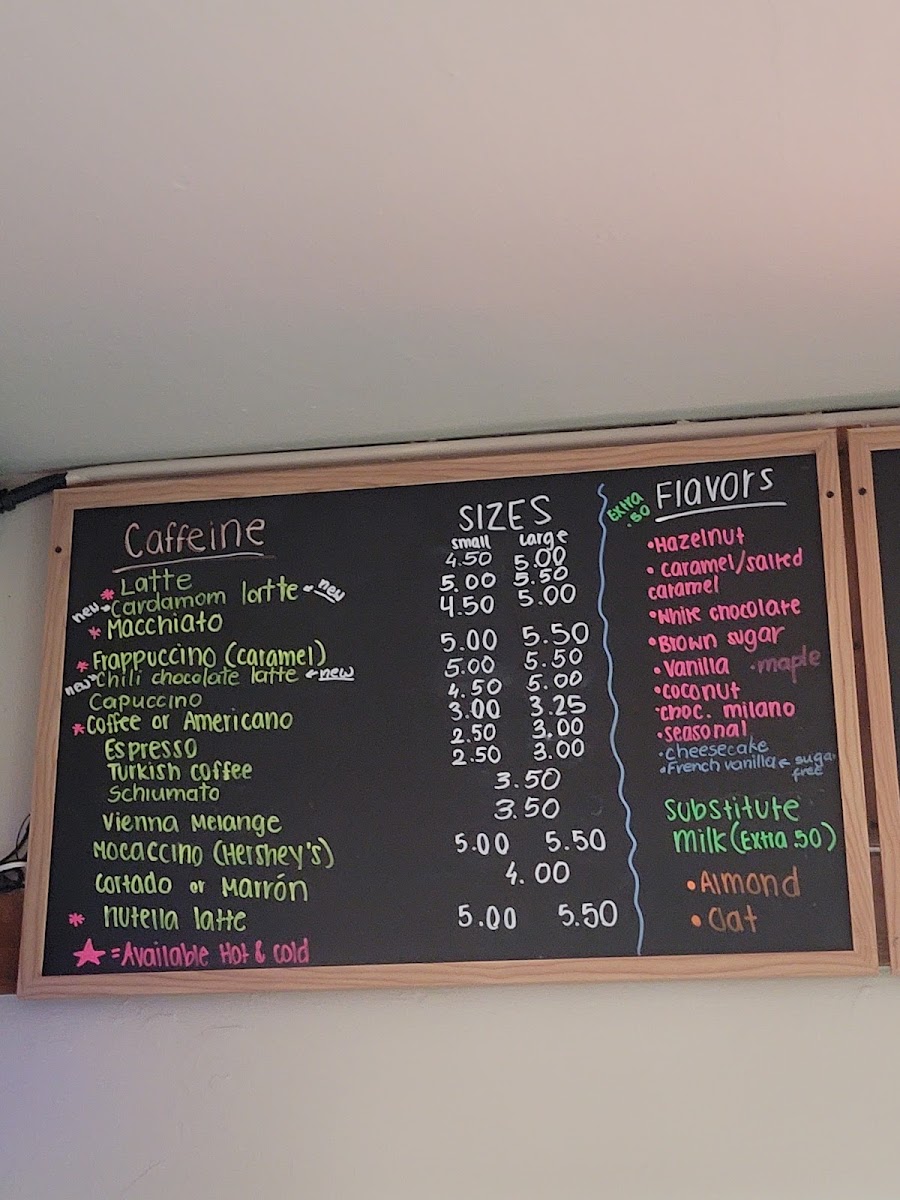 Caffeine
SIZES
small large
* Latte 4.50 5.00
new Cardamom lattte new 5.00 5.50
* Macchiato 4.50 5.00
* Frappuccino (caramel) 5.00 5.50
new Chili chocolate latte new 5.00 5.50
Capuccino 4.50 5.00
* Coffee or Americano 3.00 3.25
Espresso 2.50 3.00
Turkish coffee 2.50 3.00
Schiumato 3.50
Vienna Melange 3.50
Mocaccino (Hershey's) 5.00 5.50
Cortado or Marrón 4.00
* Nutella latte 5.00 5.50
★ = Available Hot & cold
Extra .50
Flavors
• Hazelnut
• caramel/salted
caramel
• White chocolate
• Brown sugar
• Vanilla • maple
• coconut
• choc. milano
• seasonal
• cheesecake
• French vanilla ← sugar
free
Substitute
Milk (Extra .50)
• Almond
• Oat